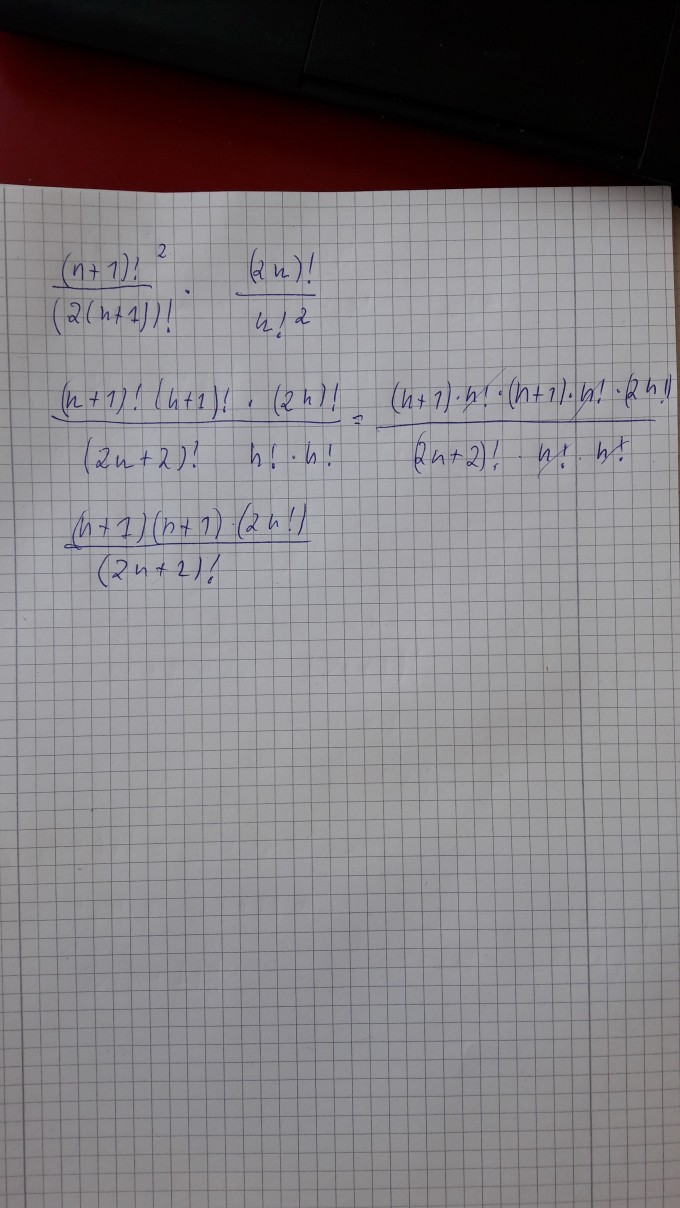 (n+1)!² / (2(n+1))! · (2n)! / n!²
(n+1)! (n+1)! · (2n)! / (2n+2)! n! · n! = (n+1) · n! · (n+1) · n! · (2n!) / (2n+2)! · n! · n!
(n+1)(n+1) · (2n!) / (2n+2)!